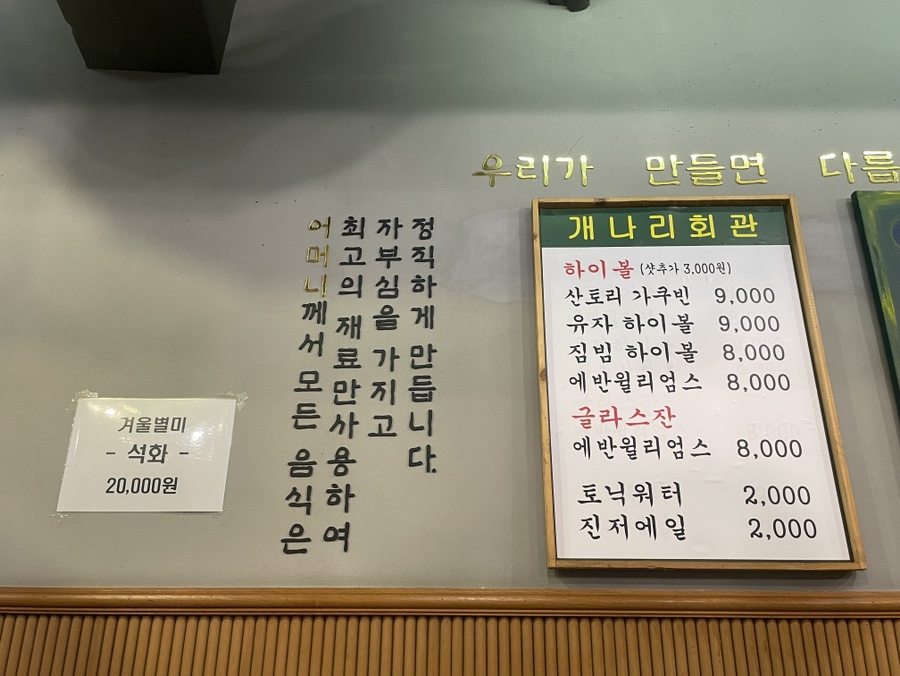 우리가 만들면 다름
어머니께서 모든 음식은
최고의 재료만 사용하여
자부심을 가지고
정직하게 만듭니다.
겨울별미
- 석화 -
20,000원
개나리회관
하이볼 (샷추가 3,000원)
산토리 가쿠빈 9,000
유자 하이볼 9,000
짐빔 하이볼 8,000
에반윌리엄스 8,000
글라스잔
에반윌리엄스 8,000
토닉워터 2,000
진저에일 2,000